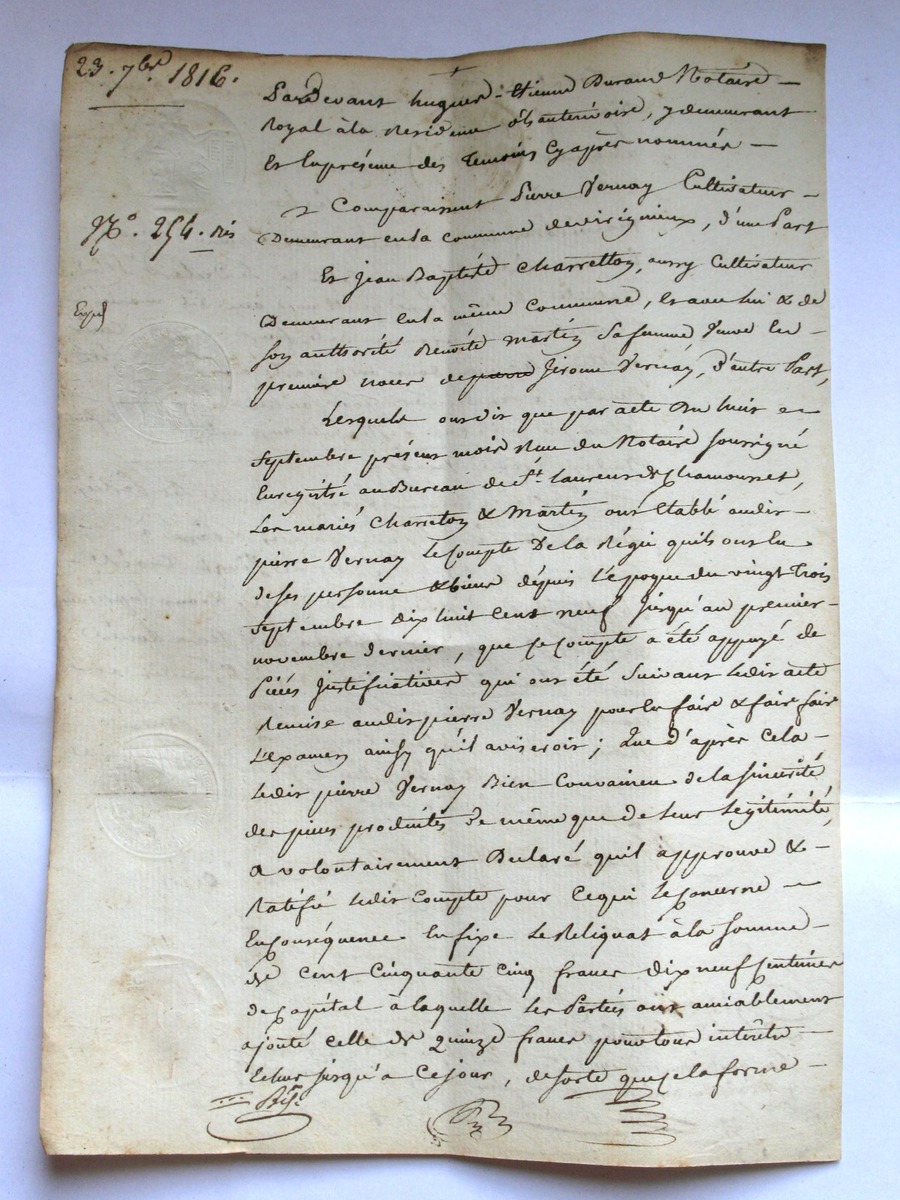 23. 7bre 1816.
Pardevant hugues-Etienne Durand Notaire
Royal à la Residence d'hauterivoire, y demeurant
Et En présence des Temoins Cy après nommés
N.º 254. bis
Comparaissent Pierre Vernay Cultivateur
Demeurant en la commune de virigneux, d'une Part
Et Jean Baptiste Charretton, aussy Cultivateur
Exped
Demeurant en la même Commune, Et avec lui & de
Son authorité Benoite Martin Sa femme Veuve En
première noces de Jerome Vernay, d'autre Part,
Lesquels ont dit que par acte du huit
Septembre présent mois Reçu du Notaire soussigné
Enregistré au Bureau de St. Laurent de Chamousset,
Les mariés Charreton & Martin ont Etabli audit
pierre Vernay Le Compte De la Régie qu'ils ont Eu
de ses personne & biens dépuis l'Epoque du vingt Trois
Septembre dix huit Cent neuf Jusqu'au premier
novembre dernier, que ce Compte a été appuyé de
Piéces Justificatives qui ont été Suivant ledit acte
Remise audit pierre Vernay pour les faire & fair faire
L'examen ainsy qu'il aviseroit; Que d'après Cela
Ledit pierre Vernay Bien Convaincu de la Sincerité
des pieces produites de même que de leur Légitimité,
A volontairement Déclaré qu'il approuve &
Ratifie ledit Compte pour Ce qui le Concerne
En Conséquence En fixe Le Reliquat à la Somme
de Cent Cinquante Cinq francs Dix neuf Centimes
de Capital à laquelle les Parties ont amiablement
ajouté Celle de Quinze francs pour tous intérêts
Echus jusqu'a Ce jour, de sorte que cela forme